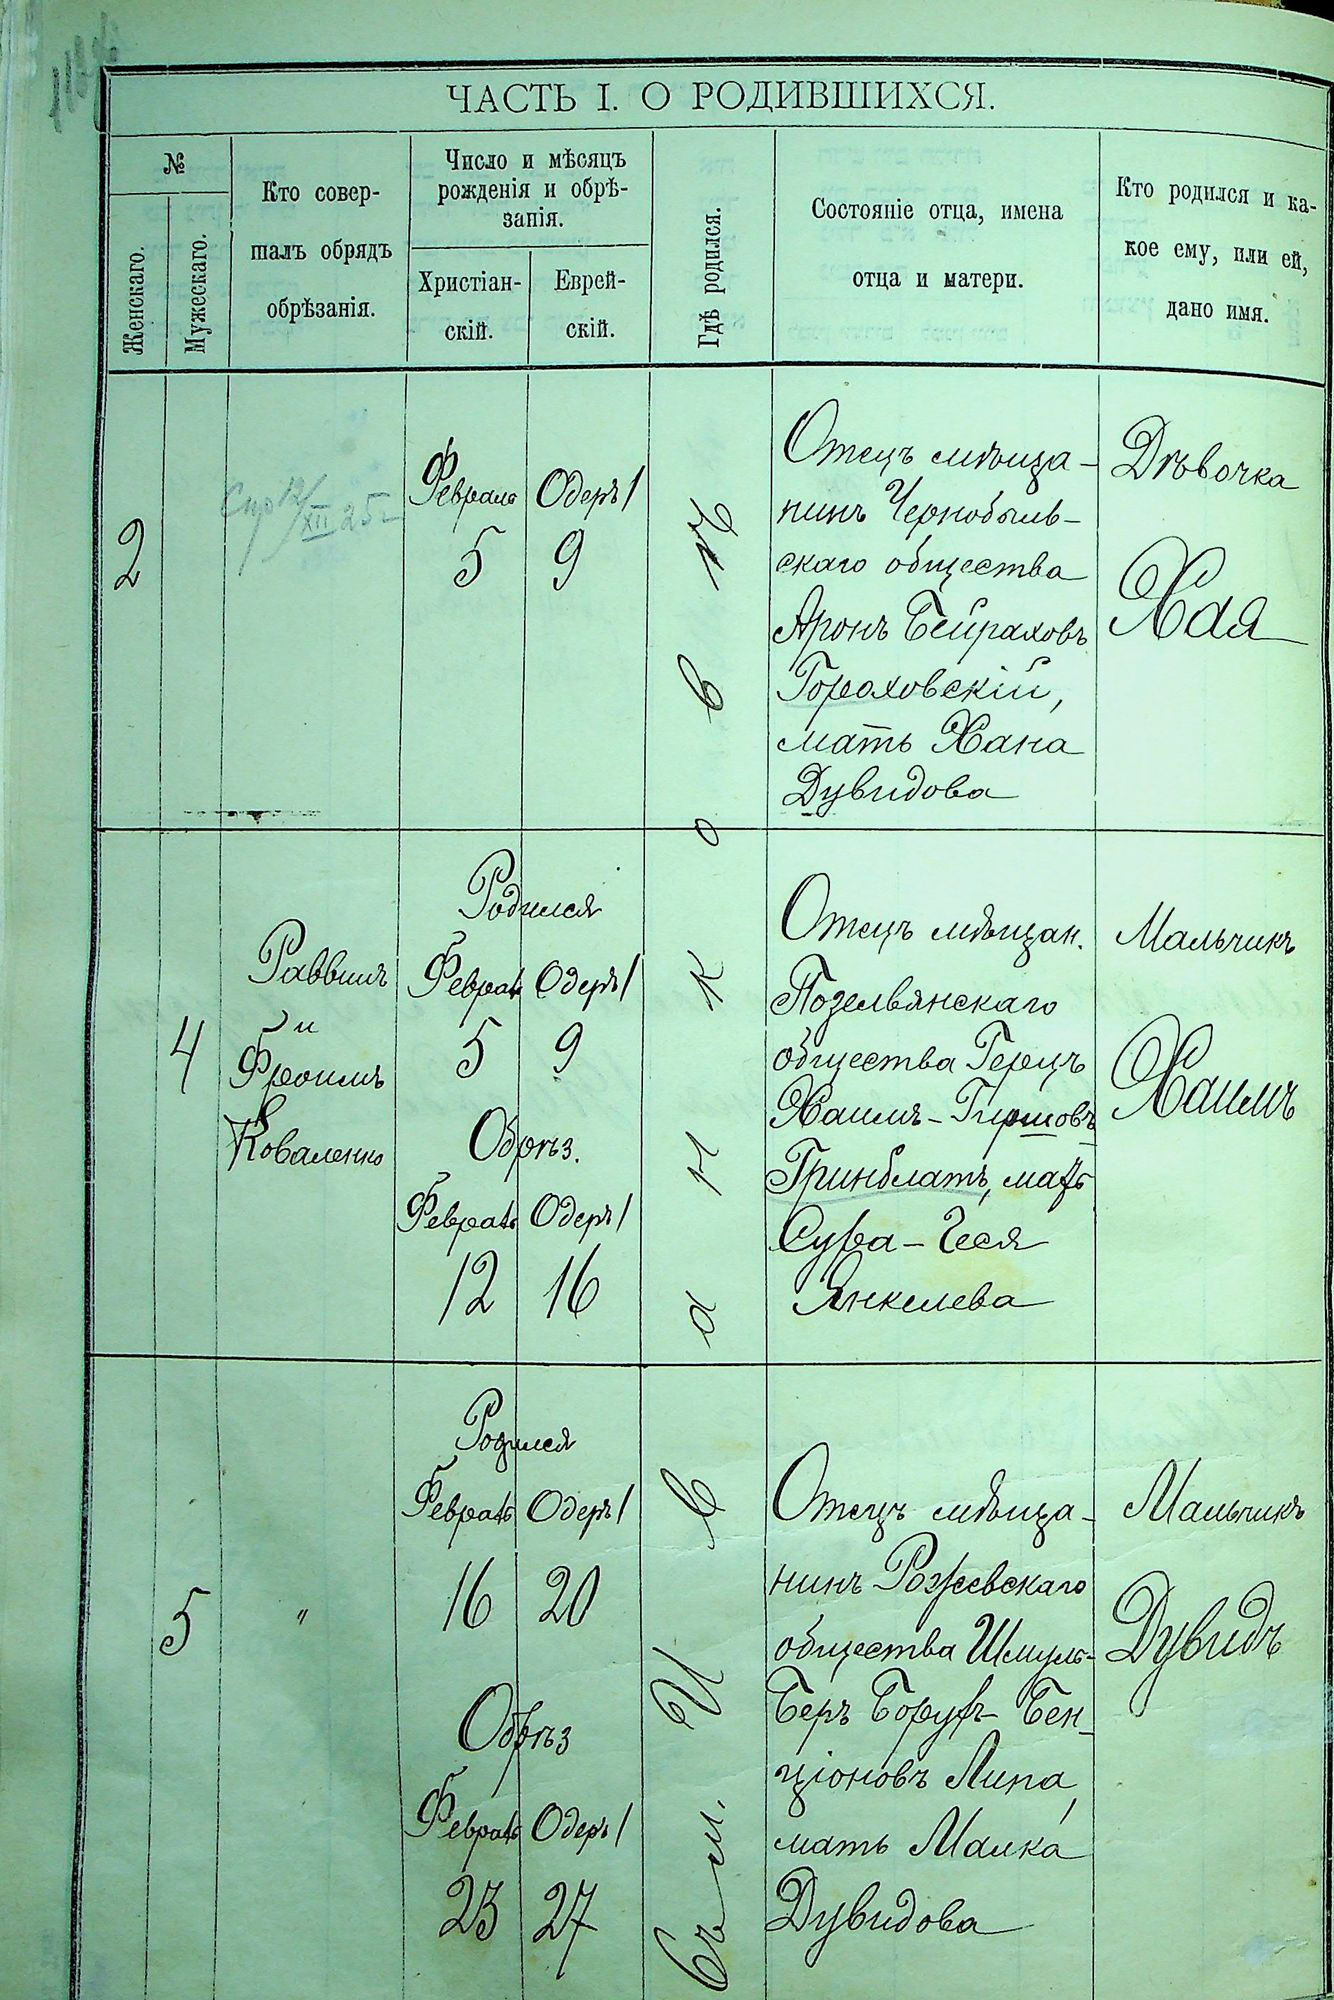 ЧАСТЬ I. О РОДИВШИХСЯ.
№
Женскаго.
Мужескаго.
Кто совер-
шалъ обрядъ
обрѣзанія.
Число и мѣсяцъ
рожденія и обрѣ-
занія.
Христіан-
скій.
Еврей-
скій.
Гдѣ родился.
Состояніе отца, имена
отца и матери.
Кто родился и ка-
кое ему, или ей,
дано имя.
2
Февраль
5
Одеръ 1
9
Отецъ мѣща-
нинъ Чернобыль-
скаго общества
Аронъ Бейраховъ
Гороховскій,
мать Хана
Дувидова
Дѣвочка
Хая
4
Раввинъ
и
Фроимъ
Коваленко
Родился
Февраль Одеръ 1
5 9
Обрѣз.
Февраль Одеръ 1
12 16
Отецъ мѣщан.
Позельвянскаго
общества Герцъ
Хаимъ-Гиршовъ
Гринблатъ, мать
Сура-Геся
Янкелева
Мальчикъ
Хаимъ
5
"
Родился
Февраль Одеръ 1
16 20
Обрѣз
Февраль Одеръ 1
23 27
Съ м. Иванковѣ
Отецъ мѣща-
нинъ Рожевскаго
общества Шмуль-
Беръ Борухъ Бен-
ціоновъ Липа,
мать Малка
Дувидова
Мальчикъ
Дувидъ